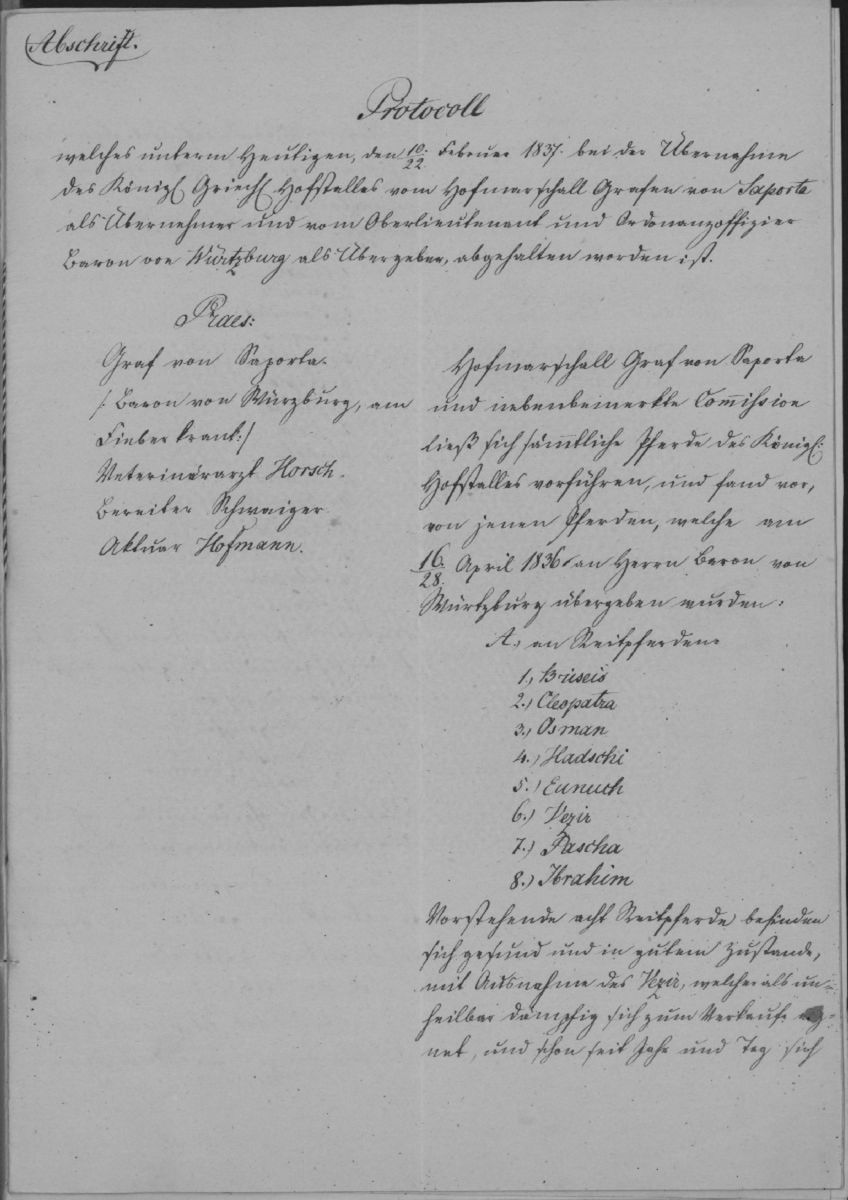 Abschrift.
Protocoll
welches unterm Heutigen, den 10./22. Februar 1837. bei der Übernahme
des Königl Griech Hofstalles vom Hofmarschall Grafen von Saporta
als Übernehmer und vom Oberlieutenant und Ordonanzoffizier
Baron von Würtzburg als Übergeber, abgehalten worden ist.
Praes:
Graf von Saporta.
/: Baron von Würzburg, am
Fieber krank :/
Veterinärarzt Horsch.
Bereiter Schwaiger
Aktuar Hofmann.
Hofmarschall Graf von Saporta
und nebenbemerkte Commission
ließ sich sämmtliche Pferde des Königl:
Hofstalles vorführen, und fand vor,
von jenen Pferden, welche am
16./28. April 1836 an Herrn Baron von
Würtzburg übergeben wurden:
A., an Reitpferden
1., Briseis
2.) Cleopatra
3.) Osman
4.) Hadschi
5.) Eunuch
6.) Vezir
7.) Pascha
8.) Ibrahim
Vorstehende acht Reitpferde befinden
sich gesund und in gutem Zustande,
mit Ausnahme des Vezir, welcher als un-
heilbar dämpfig sich zum Verkaufe eig-
net, und schon seit Jahr und Tag sich